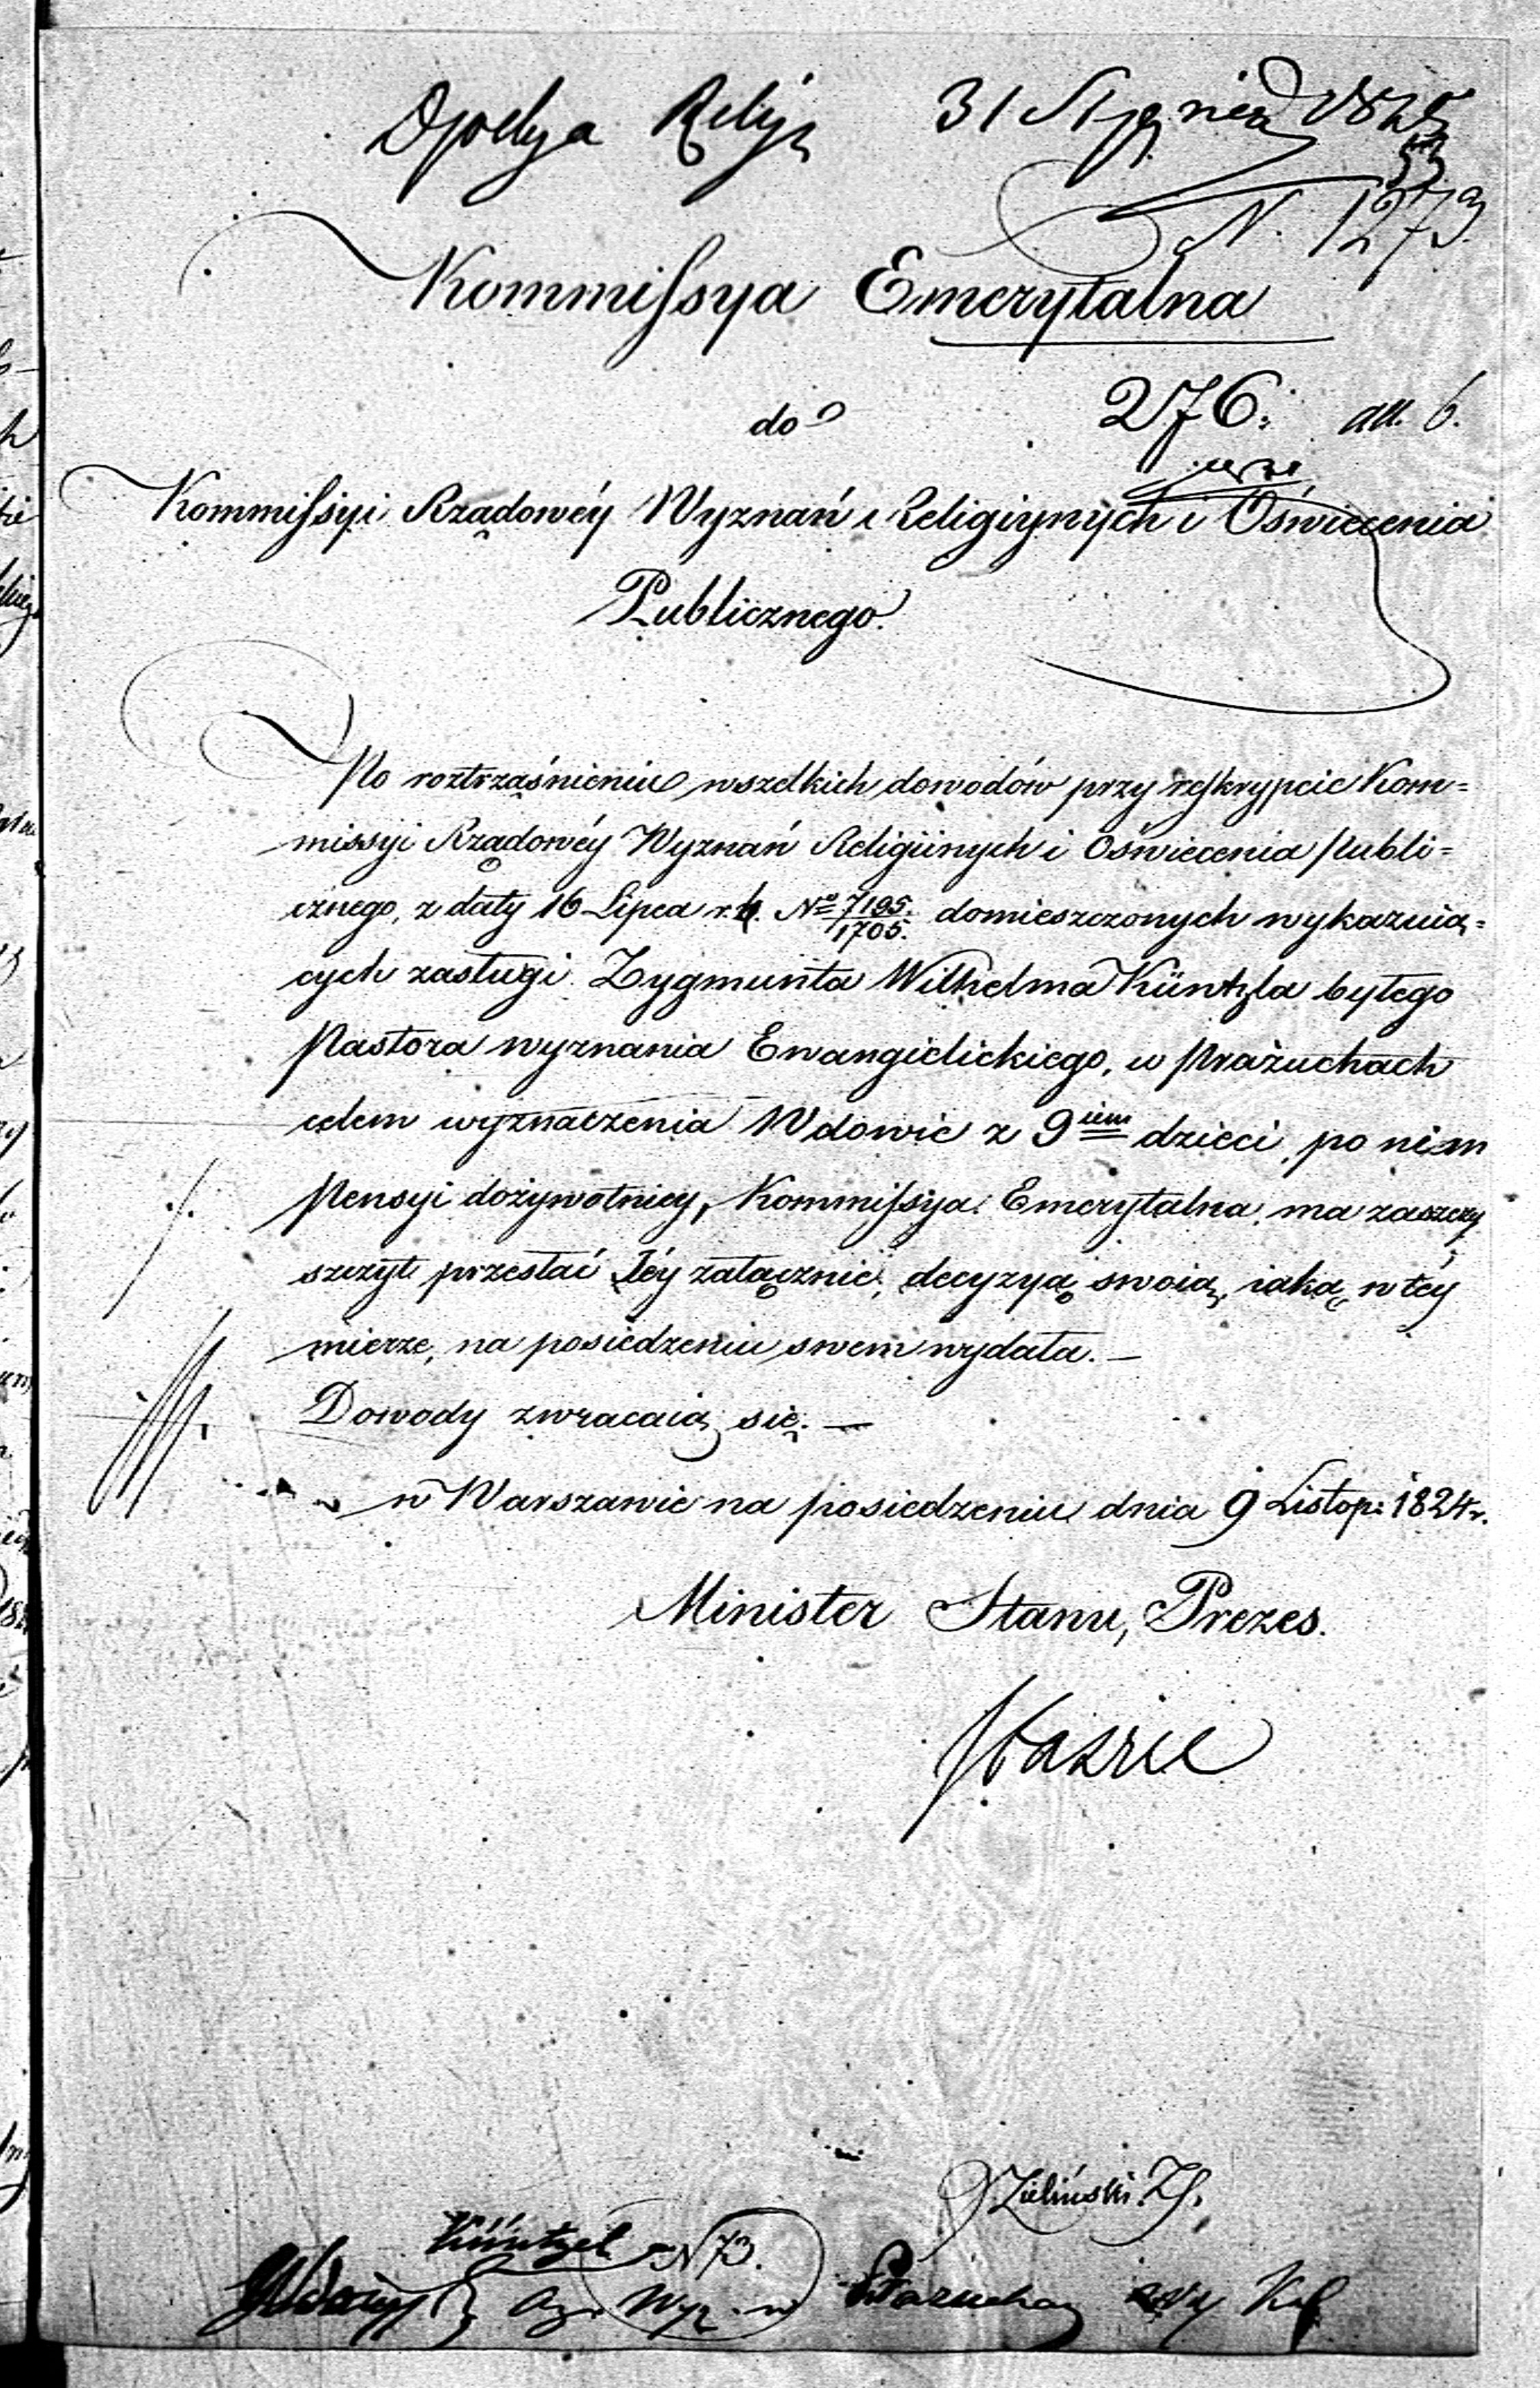 31 Stycznia 1825
N. 1273
Kommissya Emerytalna
do
276. all. 6.
Kommissyi Rządowéy Wyznań Religiynych i Oświecenia
Publicznego.
Po roztrząśnieniu wszelkich dowodów przy reskrypcie Kom=
missyi Rządowéy Wyznań Religiinych i Oświecenia Publi=
cznego, z daty 16 Lipca r.b. No 7195/1705. domieszczonych wykazuią=
cych zasługi Zygmunta Wilhelma Küntzla byłego
Pastora wyznania Ewangielickiego, w Prażuchach
celem wyznaczenia Wdowie z 9iem dzieci, po nim
Pensyi dożywotniey, Kommissya Emerytalna, ma zaszczy
szczyt przesłać Jéy załącznie, decyzyą swoią, iaką w téy
mierze, na posiedzeniu swem wydała. —
Dowody zwracaią się. —
w Warszawie na posiedzeniu dnia 9 Listop: 1824 r.
Minister Stanu, Prezes.
Staszic
Zieliński Z.
Küntzel N 73.
Wyz. w Prazuchach